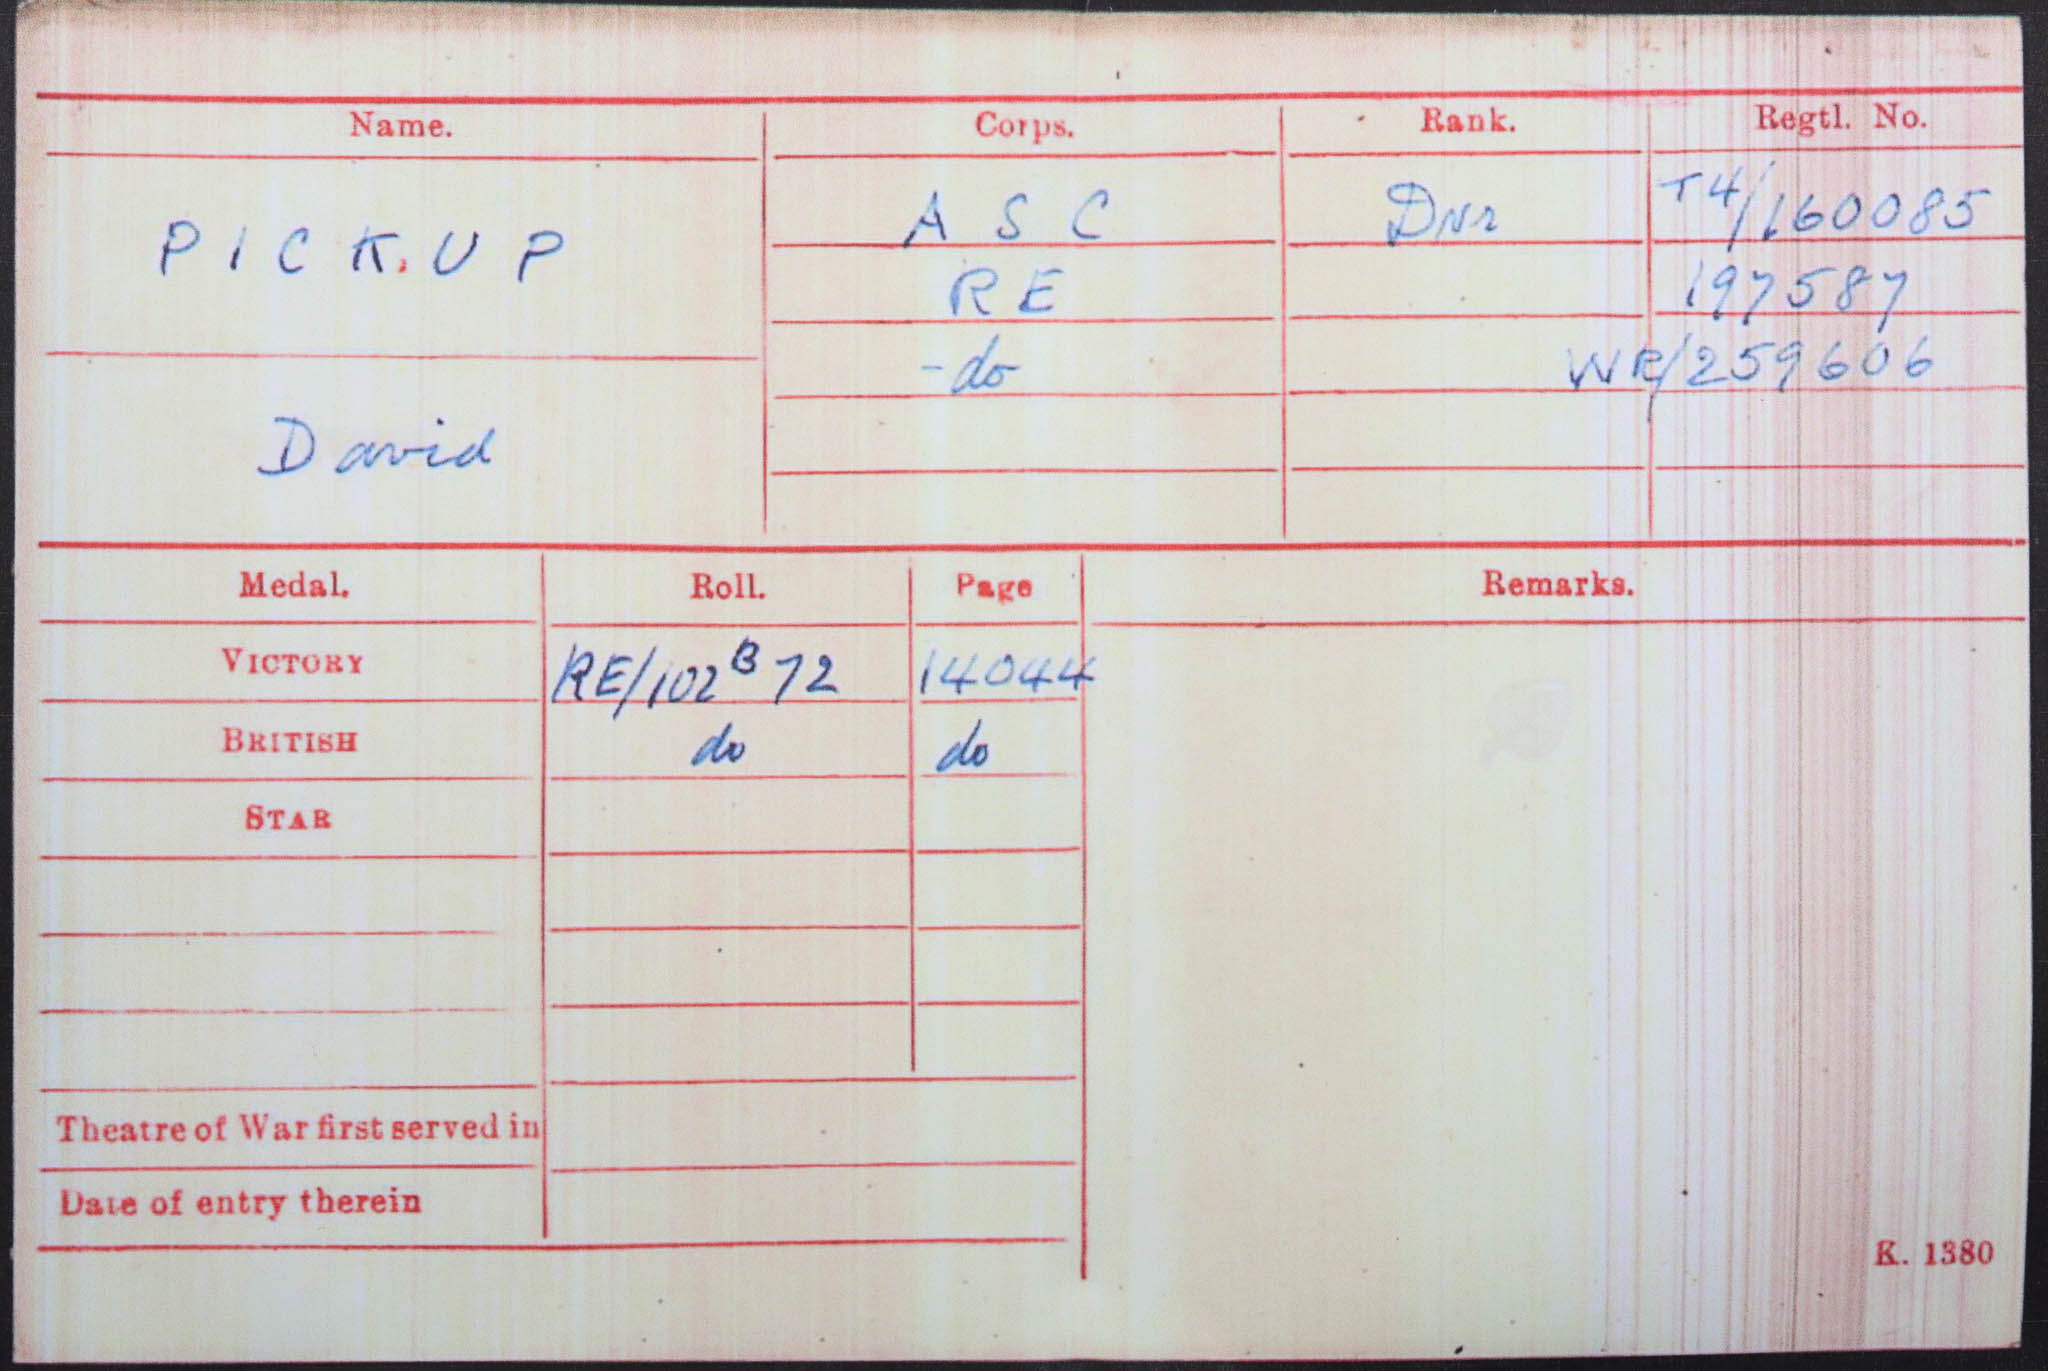 Name. Corps. Rank. Regtl. No.
PICKUP A S C Dvr T4/160085
R E 197587
-do WR/259606
David
Medal. Roll. Page Remarks.
VICTORY RE/102 B 72 14044
BRITISH do do
STAR
Theatre of War first served in
Date of entry therein
K. 1380